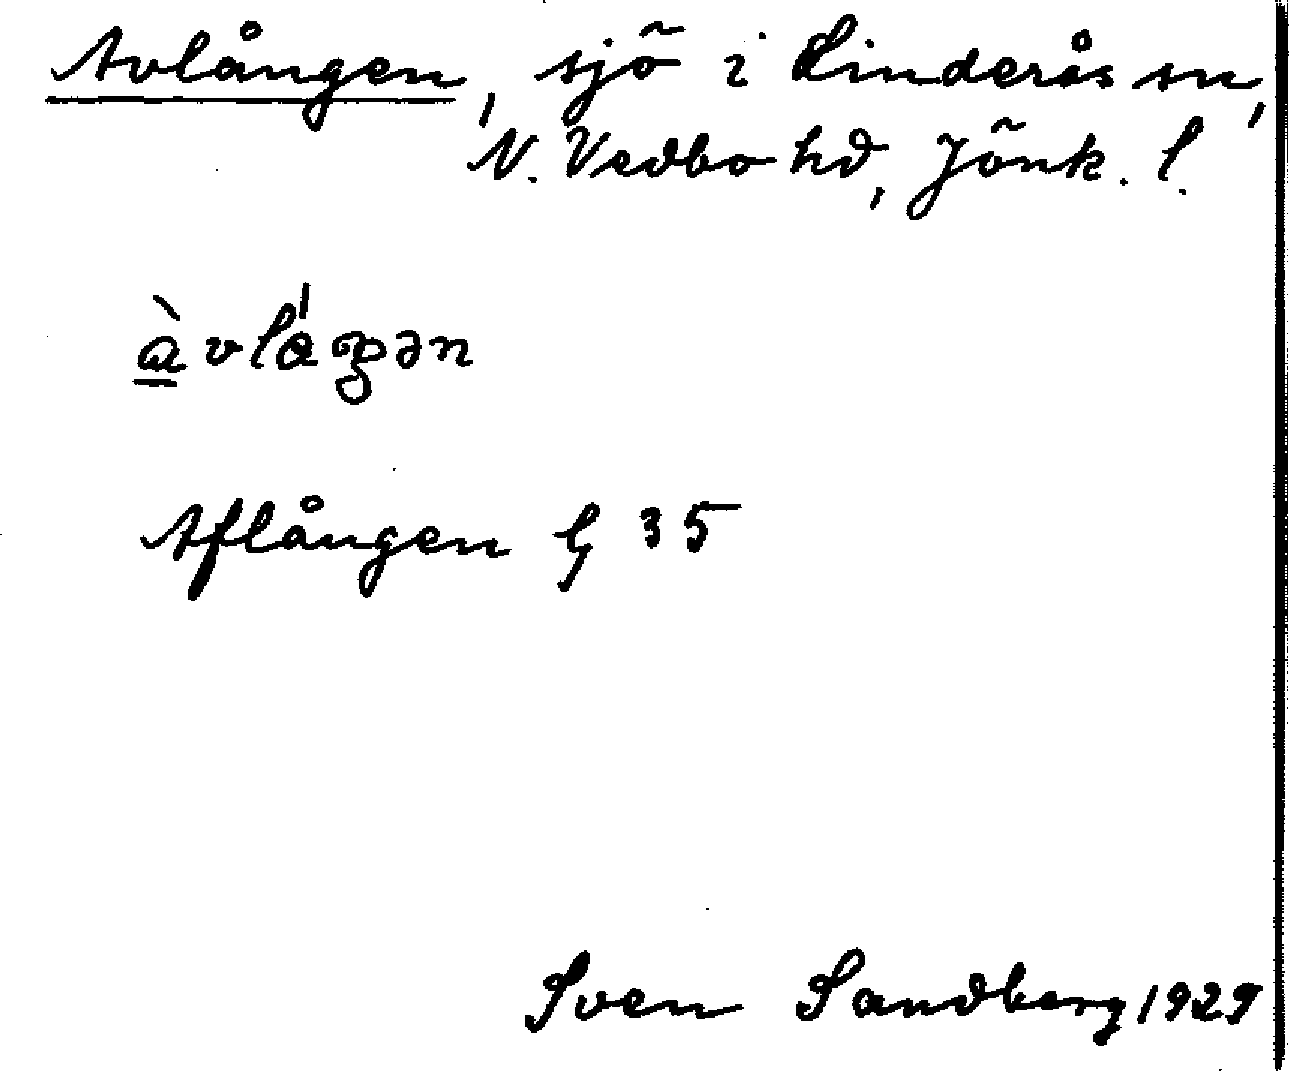 Avlången, sjö i Linderås sn,
N. Vedbo hd, Jönk. l.
àvlåŋən
Aflången G 35
Sven Sandberg 1929